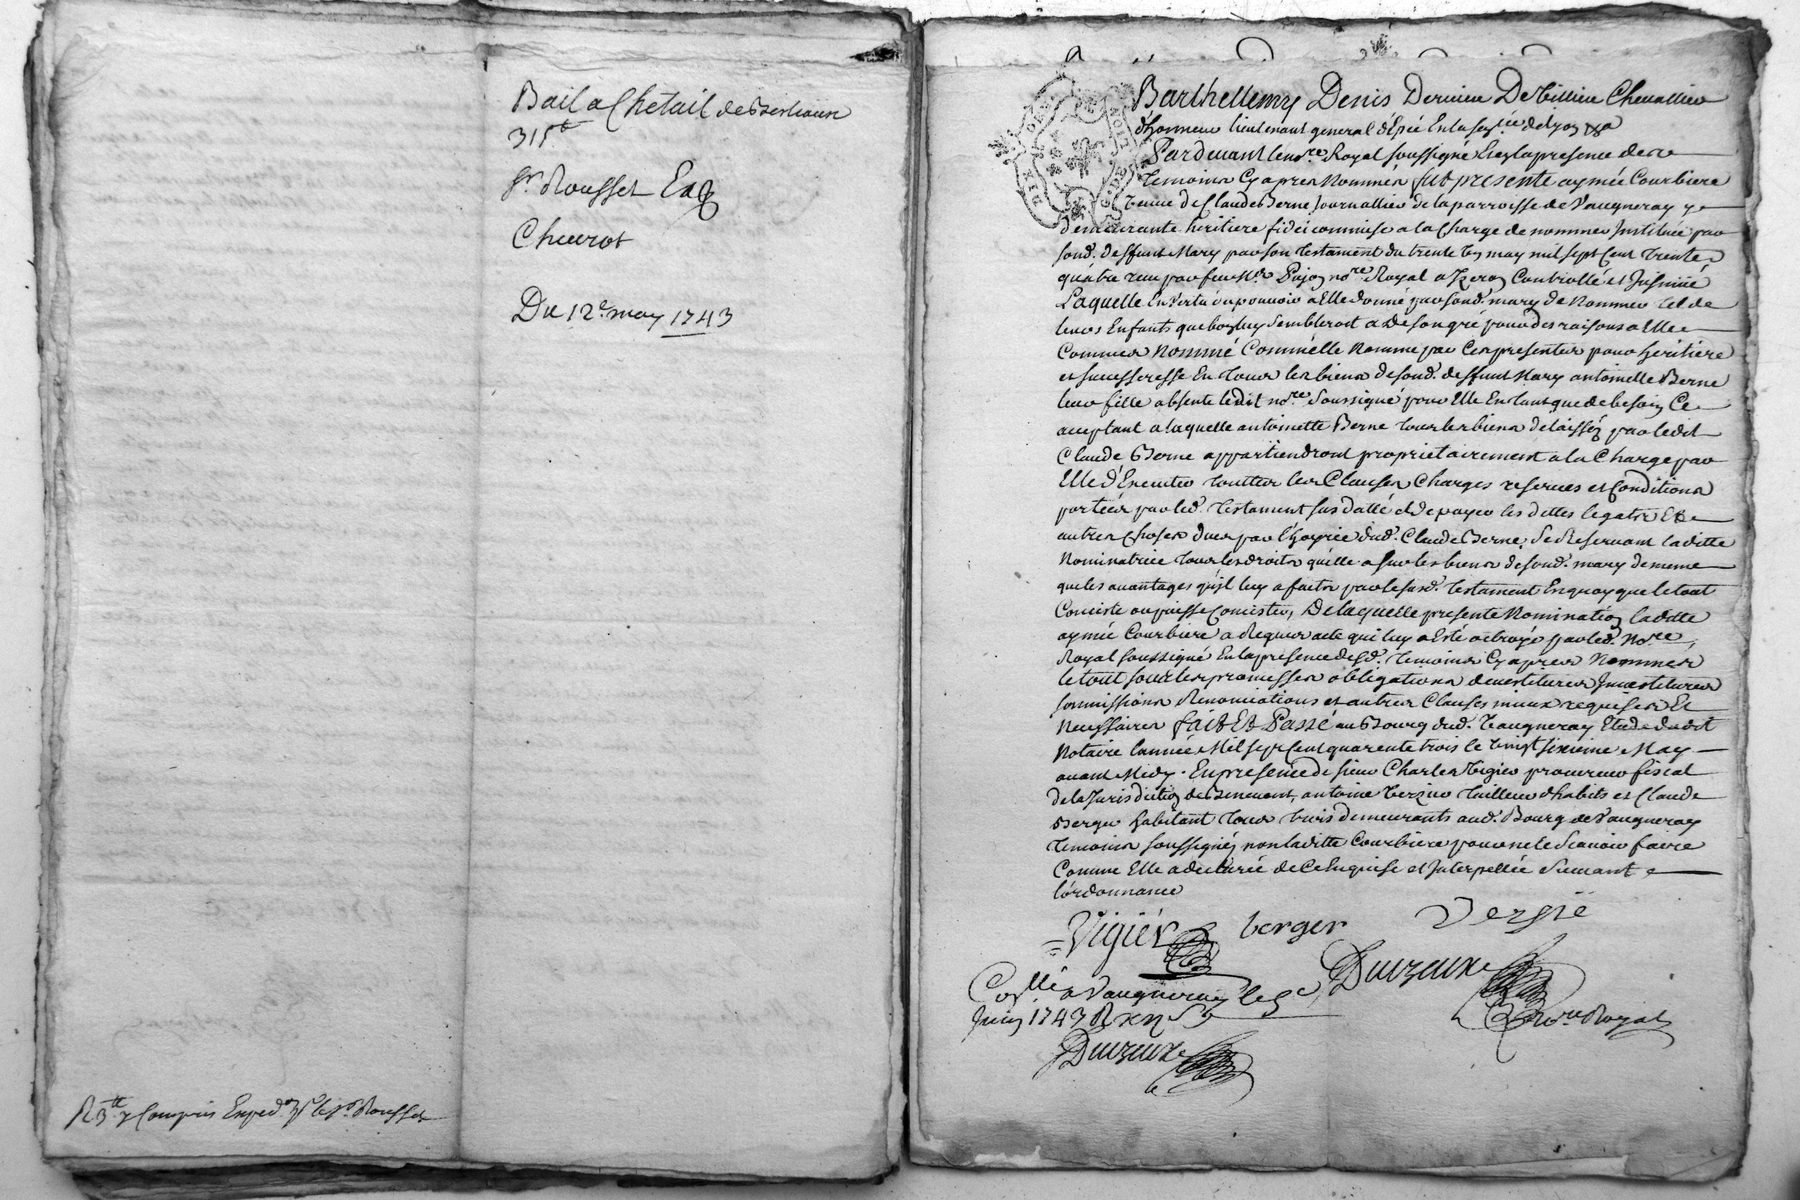 Bail a Chetail de Bestiaux
315tt
Sr Rousset Ea
Cheurot
Du 12e may 1743
R 3tt y Compris Exped. le Sr. Rousset
Barthellemy Denis Dervieu De Villieu Chevallier
d'honneur lieutenant general d'Epée En la de Lyon
Pardevant le nore Royal soussigné En la presence des
temoins Cy apres Nommés fut presente aymée Courbiere
veuve de Claude Berne Journallier de la parroisse de Vaugneray y
demeurante heritiere fideicommise a la Charge de nommer Instituée par
sond. deffunt Mary par son testament du trente un may mil sept Cent trente
quatre reçu par feu Me Pujon nore Royal a Izeron Controllé et Insinué
Laquelle En Vertu du pouvoir a Elle donné par sond. mary de Nommer tel de
leurs Enfants que bon luy sembleroit a De son gré pour des raisons a Elle
Connues Nommé Comm'elle Nomme par Ces presentes pour heritiere
et successeresse En tous les biens de sond. deffunt Mary antoinette Berne
leur fille absente ledit nore Soussigné pour Elle En tant que de besoin Ce
acceptant a laquelle antoinette Berne tous les biens delaissés par ledit
Claude Berne appartiendront proprietairement a la Charge par
Elle d'Executer touttes les Clauses Charges reserves et Conditions
portées par led. testament sus datté et de payer les dettes legats Et
autres Choses dues par l'hoyrie dud. Claude Berne, Se Reservant laditte
Nominatrice tous les droits qu'elle a sur les biens de sond. mary de meme
que les avantages qu'il luy a faits par le susd. testament En quoy que le tout
Consiste ou puisse Consister, De laquelle presente Nomination laditte
aymée Courbiere a Requis acte qui luy a Eté octroyé par led. Nore
Royal soussigné En la presence desd. temoins Cy apres Nommés
le tout sous les promesses obligations devestitures Investitures
soumissions Renonciations et autres Clauses mieux requises Et
Necessaires fait Et Passé au Bourg dud. Vaugneray Etude dudit
Notaire l'année Mil sept Cent quarente trois le vingt sixieme May
avant Midy. En presence de sieur Charles Vigier procureur fiscal
de la Jurisdiction de Benevent, antoine Verzier tailleur d'habits et Claude
Berger habitant tous trois demeurants aud. Bourg de Vaugneray
temoins soussignés non laditte Courbiere pour ne le Scavoir faire
Comme Elle a declarée de Ce Enquise et Interpellée Suivant
l'ordonnance
Vigier berger Versie
Collé a Vaugneray le 5e
Juin 1743 R
nore Royal